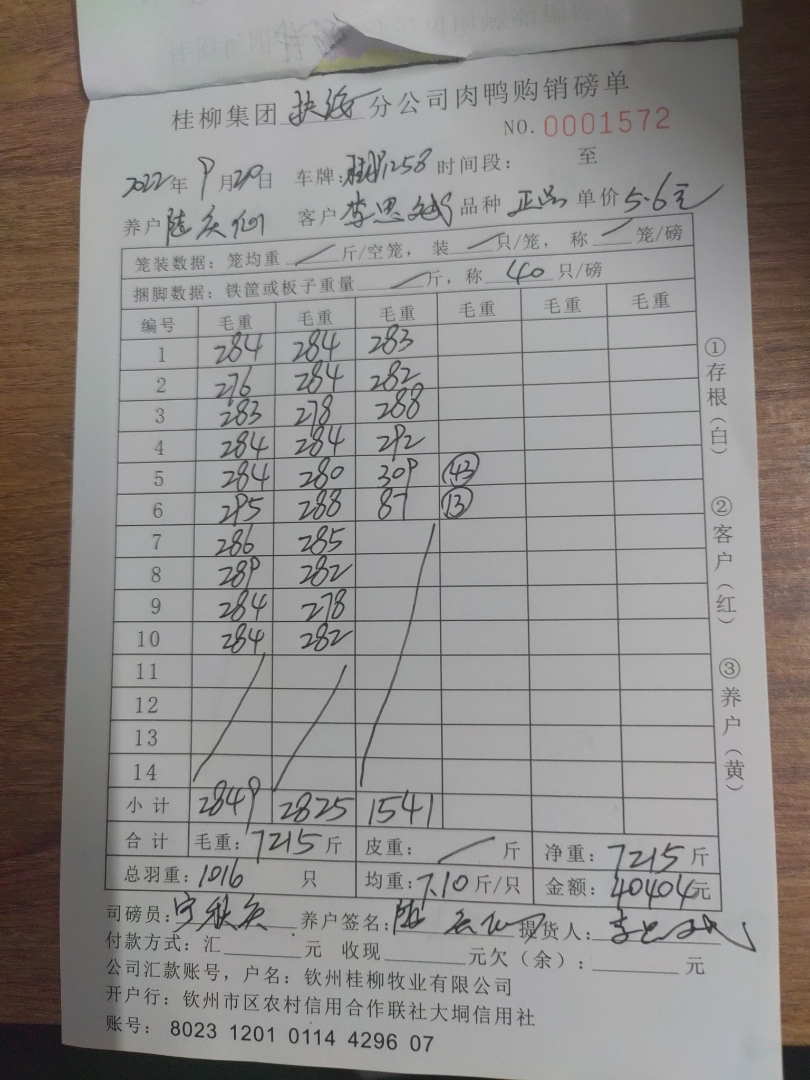 桂柳集团扶绥分公司肉鸭购销磅单
NO. 0001572
2022年9月20日 车牌: 1258 时间段: 至
养户 陆庆 客户 李思 品种 正品 单价 5.6元
笼装数据: 笼均重 / 斤/空笼, 装 / 只/笼, 称 / 笼/磅
捆脚数据: 铁筐或板子重量 / 斤, 称 40 只/磅
编号 毛重 毛重 毛重 毛重 毛重 毛重
1 284 284 283
2 276 284 282
3 283 278 288
4 284 284 292
5 284 280 309 43
6 295 288 87 13
7 286 285
8 289 282
9 284 278
10 284 282
11
12
13
14
小计 2849 2825 1541
合计 毛重: 7215 斤 皮重: / 斤 净重: 7215 斤
总羽重: 1016 只 均重: 7.10 斤/只 金额: 40404元
司磅员: 养户签名: 提货人:
付款方式: 汇 元 收现 元欠(余): 元
公司汇款账号, 户名: 钦州桂柳牧业有限公司
开户行: 钦州市区农村信用合作联社大垌信用社
账号: 8023 1201 0114 4296 07
①存根(白)
②客户(红)
③养户(黄)